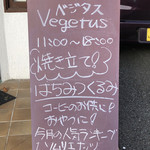 ベジタス
Vegetus
11:00〜18:00
焼き立て!
はちみつくるみ
コーヒーのお供に!
おやつに!
今月の人気ランキング